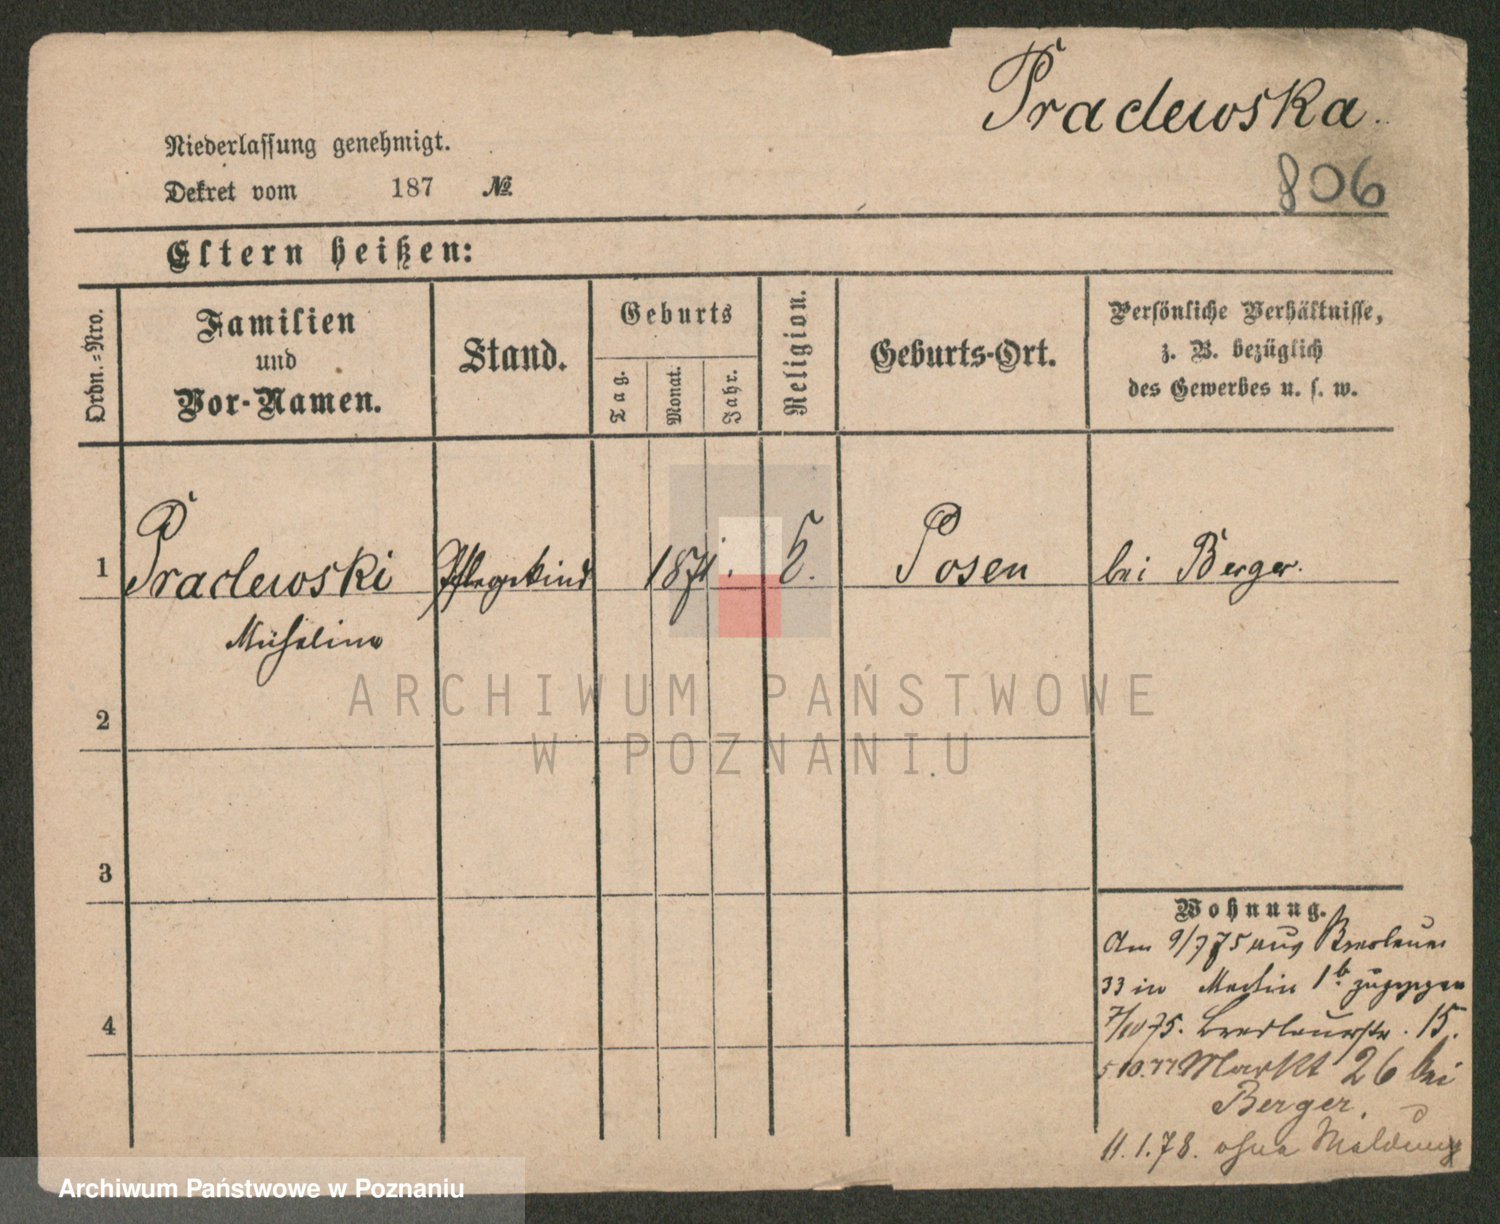 Pradewska.
806
Niederlassung genehmigt.
Dekret vom 187 №
Eltern heißen:
Ordn.-Nro.
Familien
und
Vor-Namen.
Stand.
Geburts
Tag.
Monat.
Jahr.
Religion.
Geburts-Ort.
Persönliche Verhältnisse,
z. B. bezüglich
des Gewerbes u. s. w.
1 Pradewski Pflegekind 1871. Posen bei Berger.
2
3
4
Wohnung.
Am 9/7 75 aus Breslauer
33 in Martin 1b. zugezogen
7/10 75. Breslauerstr. 15.
5.10.77 Markt 26 bei
Berger.
11.1.78. ohne Meldung
ARCHIWUM PAŃSTWOWE
W POZNANIU
Archiwum Państwowe w Poznaniu